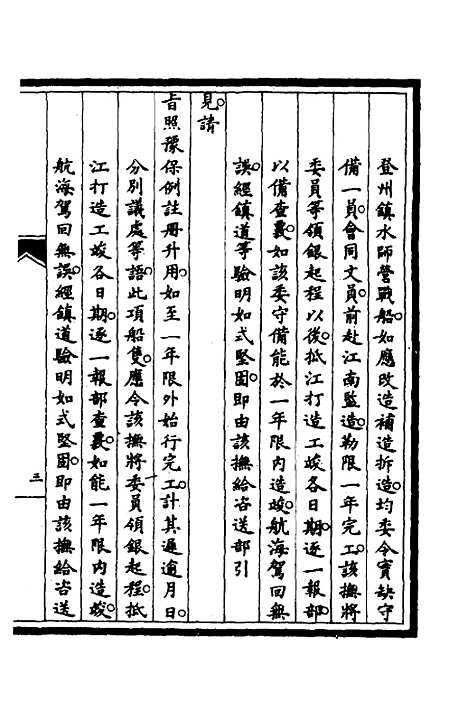 登州鎮水師營戰船。如應改造補造拆造。均委令實缺守
備一員。會同文員。前赴江南監造。勒限一年完工。該撫將
委員等領銀起程以後。抵江打造工竣各日期。逐一報部。
以備查覈。如該委守備能於一年限內造竣。航海駕回無
誤。經鎮道等驗明如式堅固。即由該撫給咨送部引
見。請
旨照豫保例註冊升用。如至一年限外始行完工。計其遲逾月日。
分別議處等語。此項船隻。應令該撫將委員領銀起程。抵
江打造工竣各日期。逐一報部查覈。如能一年限內造竣。
航海駕回無誤。經鎮道驗明如式堅固。即由該撫給咨送
三